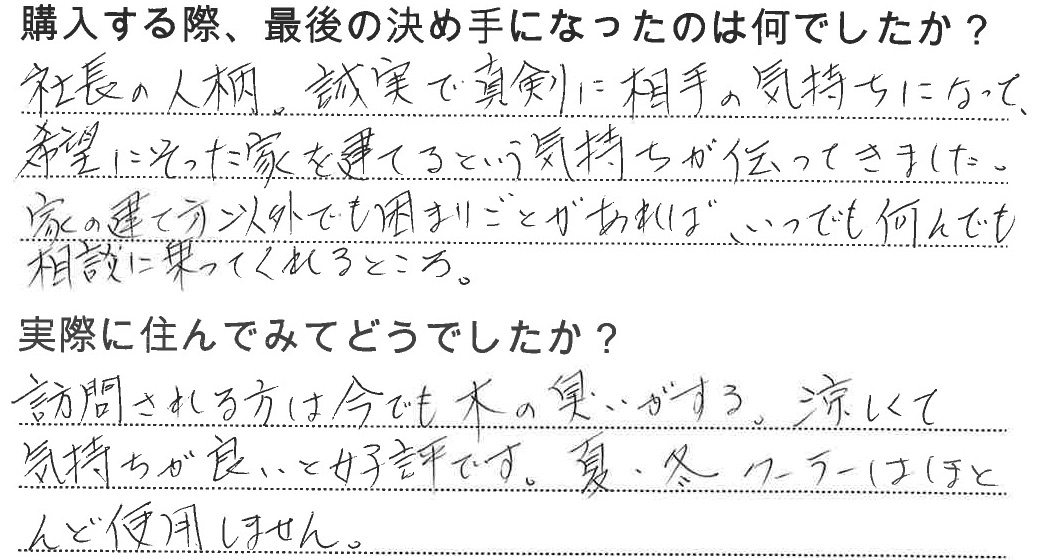 購入する際、最後の決め手になったのは何でしたか？
社長の人柄。誠実で真剣に相手の気持ちになって、
希望にそった家を建てるという気持ちが伝ってきました。
家の建て方以外でも困まりごとがあれば、いつでも何んでも
相談に乗ってくれるところ。
実際に住んでみてどうでしたか？
訪問される方は今でも木の臭いがする。涼しくて
気持ちが良いと好評です。夏・冬クーラーはほと
んど使用しません。